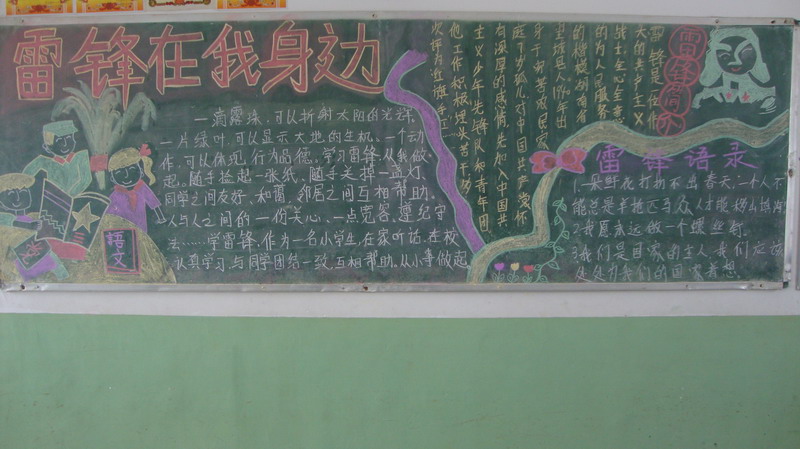 雷锋在我身边
一滴露珠，可以折射太阳的光辉，
一片绿叶，可以显示大地的生机，一个动
作，可以体现行为品德。学习雷锋，从我做
起。随手捡起一张纸，随手关掉一盏灯，
同学之间友好、和蔼，邻居之间互相帮助。
人与人之间的一份关心，一点宽容，遵纪守
法……学雷锋，作为一名小学生，在家听话，在校
认真学习，与同学团结一致，互相帮助。从小事做起
語文
雷锋简介
雷锋是一位伟
大的共产主义
战士全心全意
的为人民服务
的楷模湖南省
望城县人1940年出
身于
庭了少孤儿对中国共产党怀
有深厚的感情先加入中国共
主义少年先锋队和青年团
他工作积极埋头苦干多
次评为
雷锋语录
1.一朵鲜花打扮不出春天，一个人不
能总是单枪匹马众人才能移山填海
2.我愿永远做一个螺丝钉。
3.我们是国家的主人，我们应该
处处为我们的国家着想。